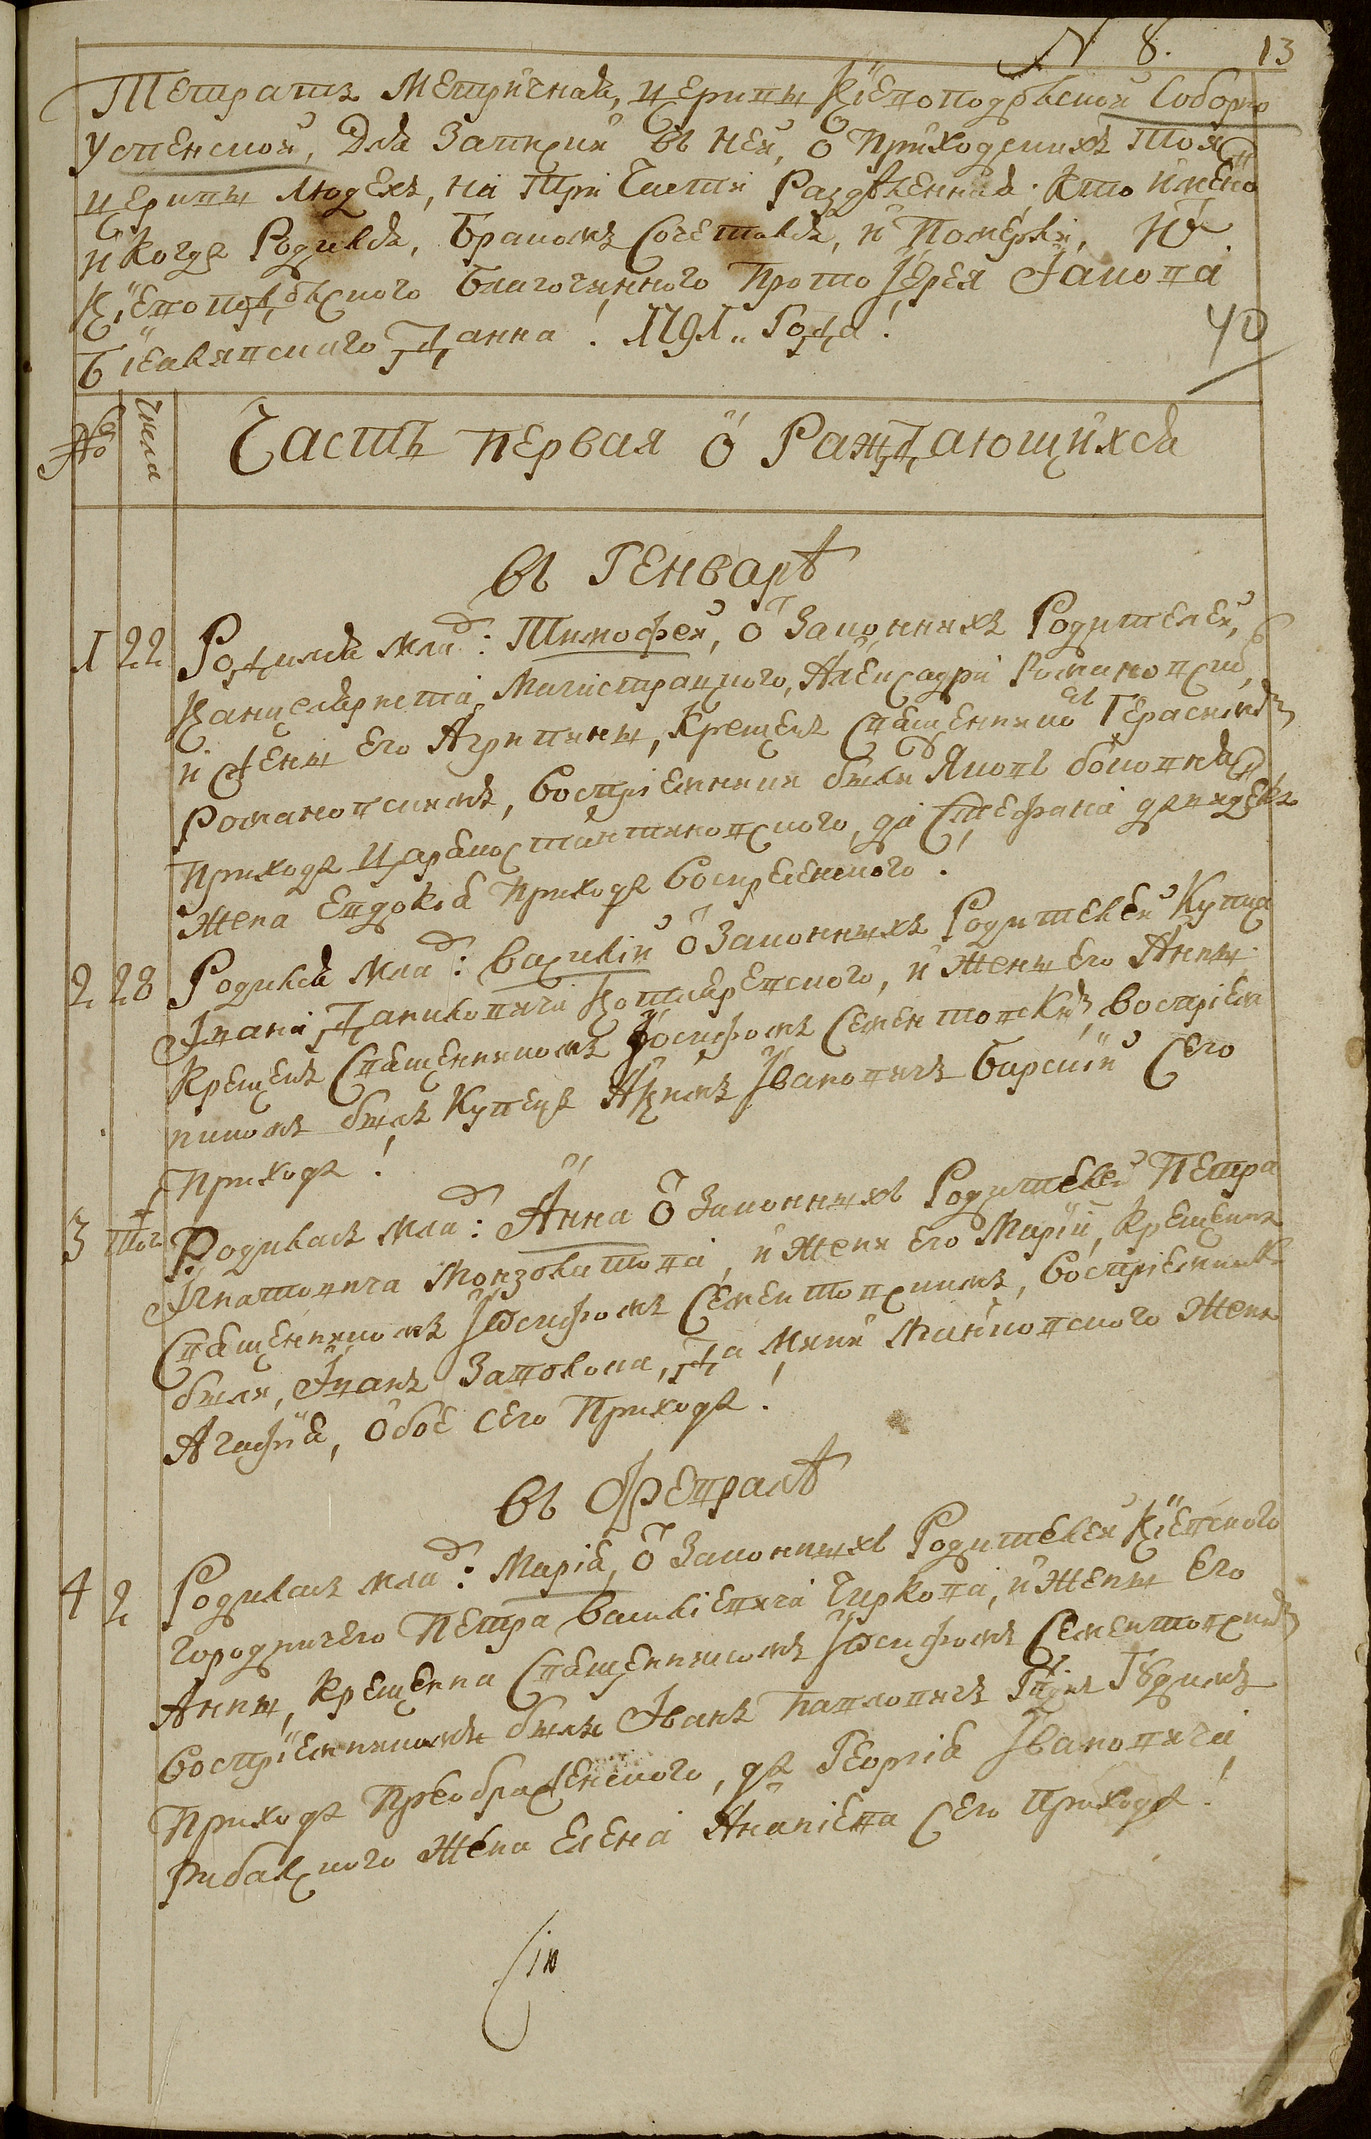 N 8. 13
Тетратъ Метричная, церкви Кіевоподолской Соборно
Успенской, Для Записки въ ней, о приходскихъ тоя
церкви людехъ, на три части Раздѣленная; Кто имено
и когда Родился, бракомъ Сочетался, и Померли,
Кіевоподолского благочинного Протоіерея Іакова
Данна! 1791„ Года!
40
№ Числа Часть первая о Раждающихся
въ Генварѣ
1 22 Родился млад: Тимофей, о Законнихъ Родителей,
Канцеляриста Магистрацкого, Александра Романовско
и жены его Агрипины, Крещенъ Священникомъ Герасимомъ
Романовскимъ, воспріемники были Яковъ
прихода Царьконстантиновского, да Стефана
жена Евдокія прихода Воскресенского!
2 28 Родился млад: Василій о Законныхъ Родителей Купца
Івана Даниловича Котляревского, и жены его Анны
Крещенъ Священникомъ Іосифомъ Сементовскимъ, воспріем
никомъ былъ Купецъ Акимъ Івановичъ Барскій Сего
Прихода!
3 Тог Родилась млад: Анна о Законныхъ Родителей Петра
Игнатовича, и жени его Маріи, Крещенна
Священникомъ Іосифомъ Сементовскимъ, воспріемники
были, Іванъ, Да жена
Агафія, обое сего Прихода!
въ Февралѣ
4 2 Родилась млад: Марія, о Законныхъ Родителей Кіевского
городничего Петра Василіевича Чиркова, и жены его
Анны, Крещенна Священникомъ Іосифомъ Сементовскимъ
воспріемниками были Іванъ Павловичъ Гудимъ
прихода Преображенского, да Георгія Івановича
Рибалского жена Елена Сего прихода!